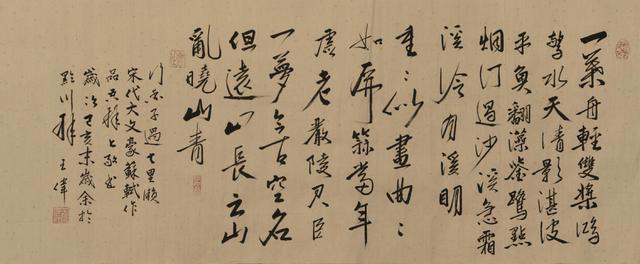 一葉舟輕雙槳鴻
驚水天清影湛波
平魚翻藻鑒鷺點
烟汀過沙溪急霜
溪冷月溪明
重〻似畫曲〻
如屏算當年
虛老嚴陵君臣
一夢今古空名
但遠山長云山
亂曉山青
行香子過七里瀨
宋代大文豪蘇軾作
品
歲次己亥末歲余於
王偉